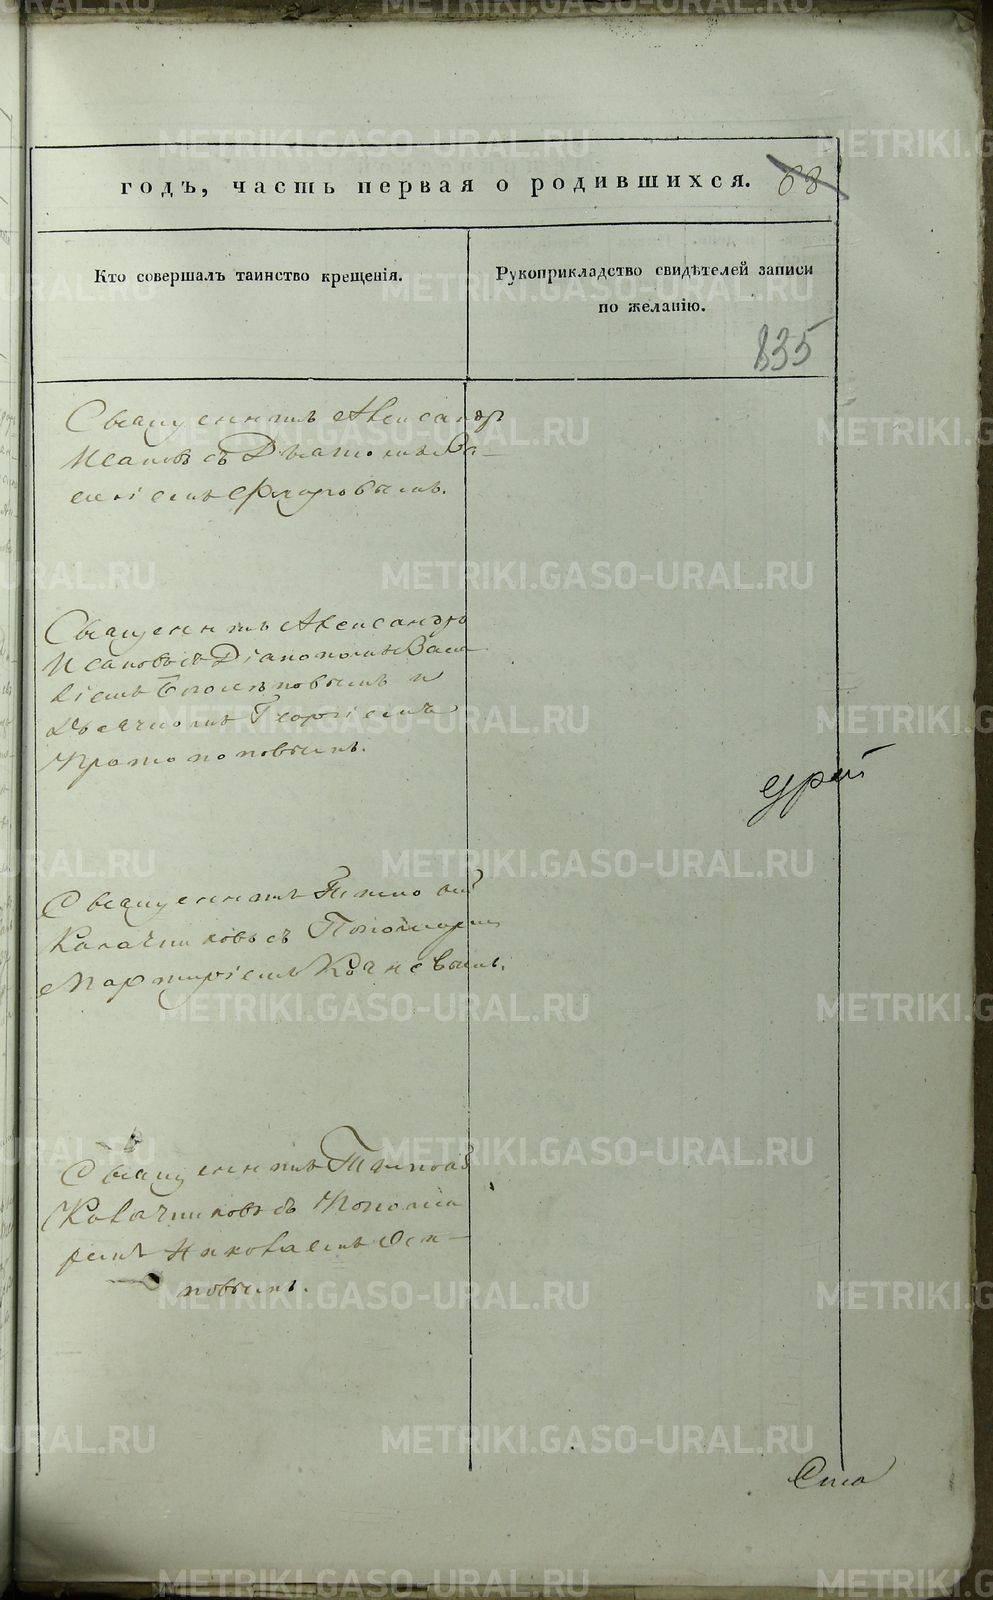 годъ, часть первая о родившихся. 68
Кто совершалъ таинство крещенія.
Рукоприкладство свидѣтелей записи
по желанію.
835
Священникъ Александръ
Исаковъ съ Дьячкомъ Ва-
силіемъ Флоровымъ.
Священникъ Александръ
Исаковъ съ Діакономъ Васи
ліемъ и
Дьячкомъ Георгіемъ
Протопоповымъ.
Священникъ Тимофей
Калачниковъ съ Пономаремъ
Мартиріемъ
Священникъ Тимофей
Калачниковъ съ Понома
ремъ Николаемъ Оси-
повымъ.
METRIKI.GASO-URAL.RU